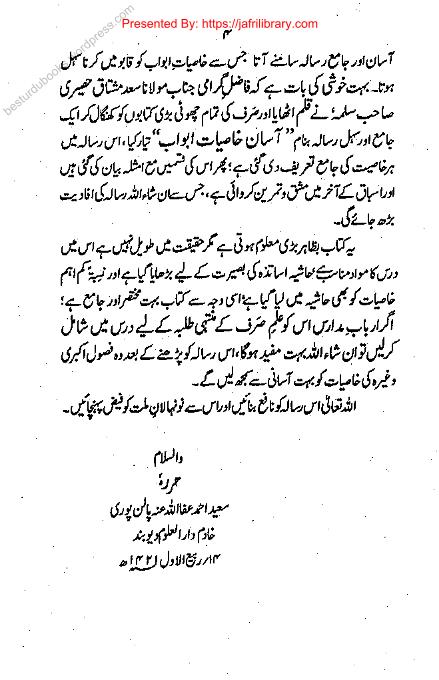 Presented By: https://jafrilibrary.com
besturdubooks.wordpress.com
۴
آسان اور جامع رسالہ سامنے آتا جس سے خاصیات ابواب کو قابو میں کرنا سہل
ہوتا۔ بہت خوشی کی بات ہے کہ فاضل گرامی جناب مولانا سعد مشتاق حصیری
صاحب سلمہٗ نے قلم اٹھایا اور صرف کی تمام چھوٹی بڑی کتابوں کو کھنگال کر ایک
جامع اور سہل رسالہ بنام "آسان خاصیات ابواب" تیار کیا، اس رسالہ میں
ہر خاصیت کی جامع تعریف دی گئی ہے؛ پھر اس کی قسمیں مع امثلہ بیان کی گئی ہیں
اور اسباق کے آخر میں مشق و تمرین کروائی ہے، جس سے ان شاء اللہ رسالہ کی افادیت
بڑھ جائے گی۔
یہ کتاب بظاہر بڑی معلوم ہوتی ہے مگر حقیقت میں طویل نہیں ہے اس میں
درس کا مواد مناسب ہے؛ حاشیہ اساتذہ کی بصیرت کے لیے بڑھایا گیا ہے اور نسبۃً کم اہم
خاصیات کو بھی حاشیہ میں لیا گیا ہے؛ اسی وجہ سے کتاب بہت مختصر اور جامع ہے؛
اگر ارباب مدارس اس کو علم صرف کے منتہی طلبہ کے لیے درس میں شامل
کرلیں تو ان شاء اللہ بہت مفید ہوگا، اس رسالہ کو پڑھنے کے بعد وہ فصول اکبری
وغیرہ کی خاصیات کو بہت آسانی سے سمجھ لیں گے۔
اللہ تعالیٰ اس رسالہ کو نافع بنائیں اور اس سے نونہالانِ ملت کو فیض پہنچائیں۔
والسلام
حررہٗ
سعید احمد عفا اللہ عنہ پالن پوری
خادم دارالعلوم دیوبند
۱۴/ ربیع الاول ۱۴۲۱ھ